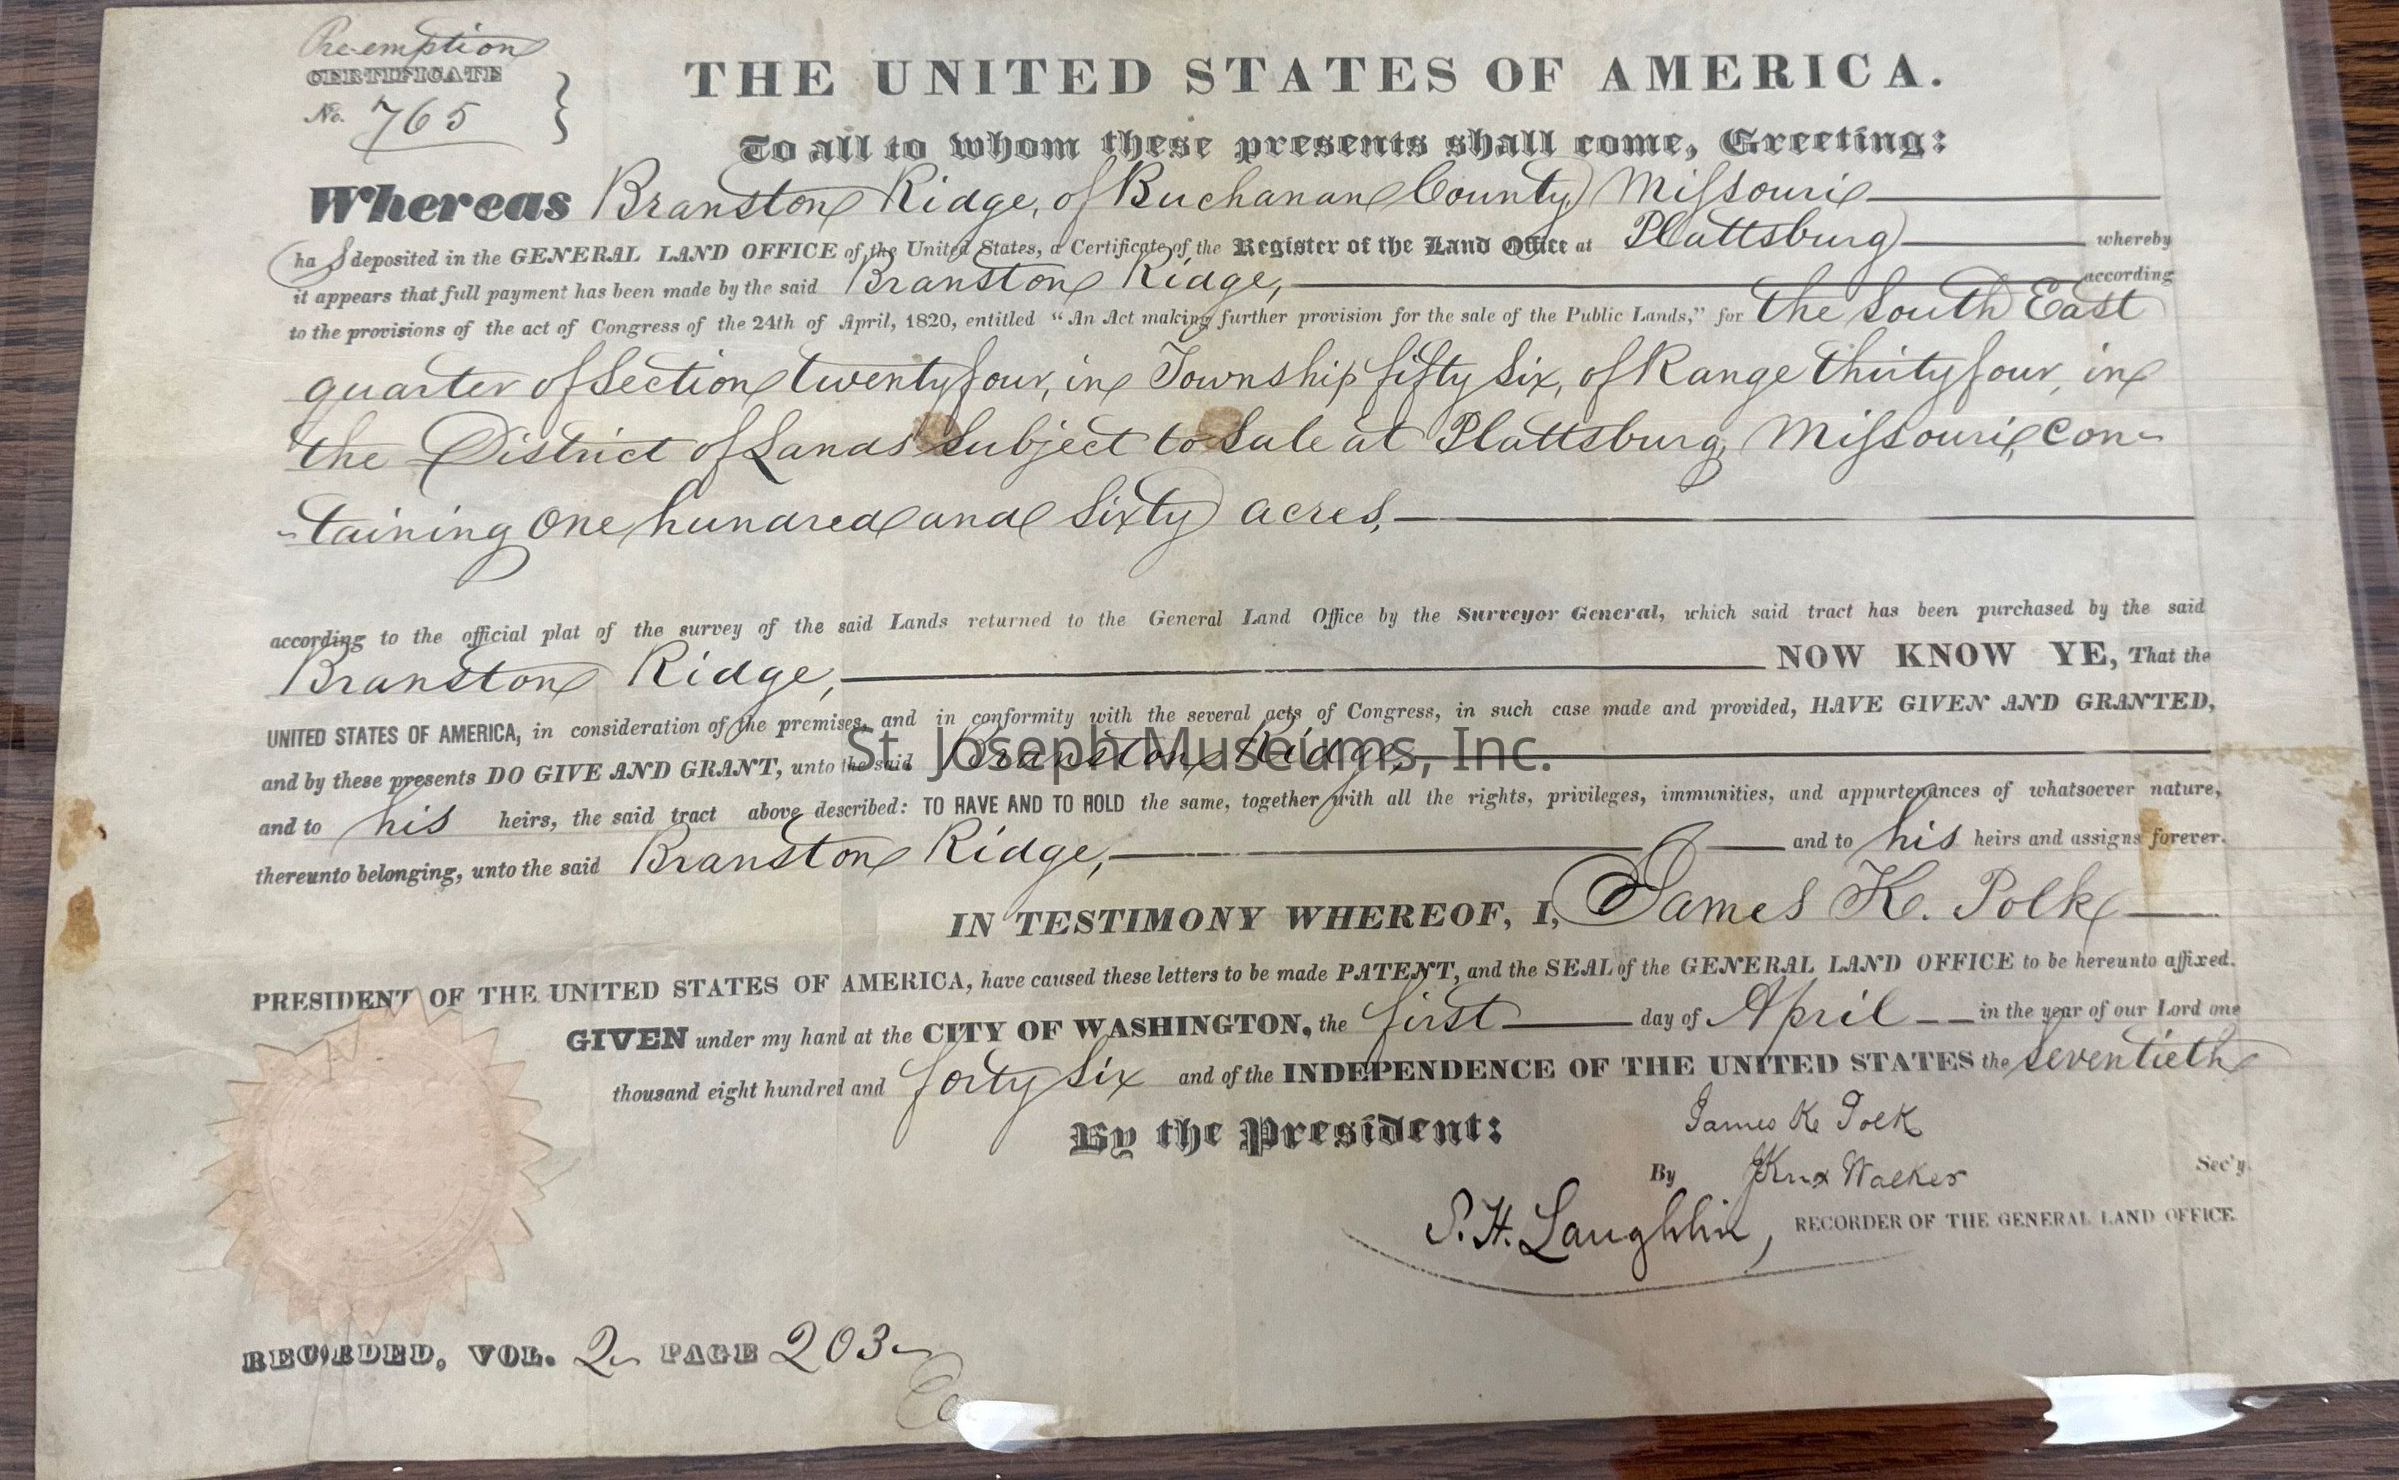 Pre-emption
CERTIFICATE
No. 765
THE UNITED STATES OF AMERICA.
To all to whom these presents shall come, Greeting:
Whereas Branston Ridge, of Buchanan County Missouri
has deposited in the GENERAL LAND OFFICE of the United States, a Certificate of the Register of the Land Office at Plattsburg whereby
it appears that full payment has been made by the said Branston Ridge, according
to the provisions of the act of Congress of the 24th of April, 1820, entitled “An Act making further provision for the sale of the Public Lands,” for the South East
quarter of Section twenty four, in Township fifty six, of Range thirty four, in
the District of Lands Subject to Sale at Plattsburg, Missouri, con-
-taining one hundred and sixty acres,
according to the official plat of the survey of the said Lands returned to the General Land Office by the Surveyor General, which said tract has been purchased by the said
Branston Ridge, NOW KNOW YE, That the
UNITED STATES OF AMERICA, in consideration of the premises, and in conformity with the several acts of Congress, in such case made and provided, HAVE GIVEN AND GRANTED,
and by these presents DO GIVE AND GRANT, unto the said Branston Ridge,
St. Joseph Museums, Inc.
and to his heirs, the said tract above described: TO HAVE AND TO HOLD the same, together with all the rights, privileges, immunities, and appurtenances of whatsoever nature,
thereunto belonging, unto the said Branston Ridge, and to his heirs and assigns forever.
IN TESTIMONY WHEREOF, I, James K. Polk
PRESIDENT OF THE UNITED STATES OF AMERICA, have caused these letters to be made PATENT, and the SEAL of the GENERAL LAND OFFICE to be hereunto affixed.
GIVEN under my hand at the CITY OF WASHINGTON, the first day of April in the year of our Lord one
thousand eight hundred and forty six and of the INDEPENDENCE OF THE UNITED STATES the Seventieth
By the President: James K Polk
By J Knox Walker Sec'y.
S. H. Laughlin, RECORDER OF THE GENERAL LAND OFFICE.
RECORDED, VOL. 2 PAGE 203